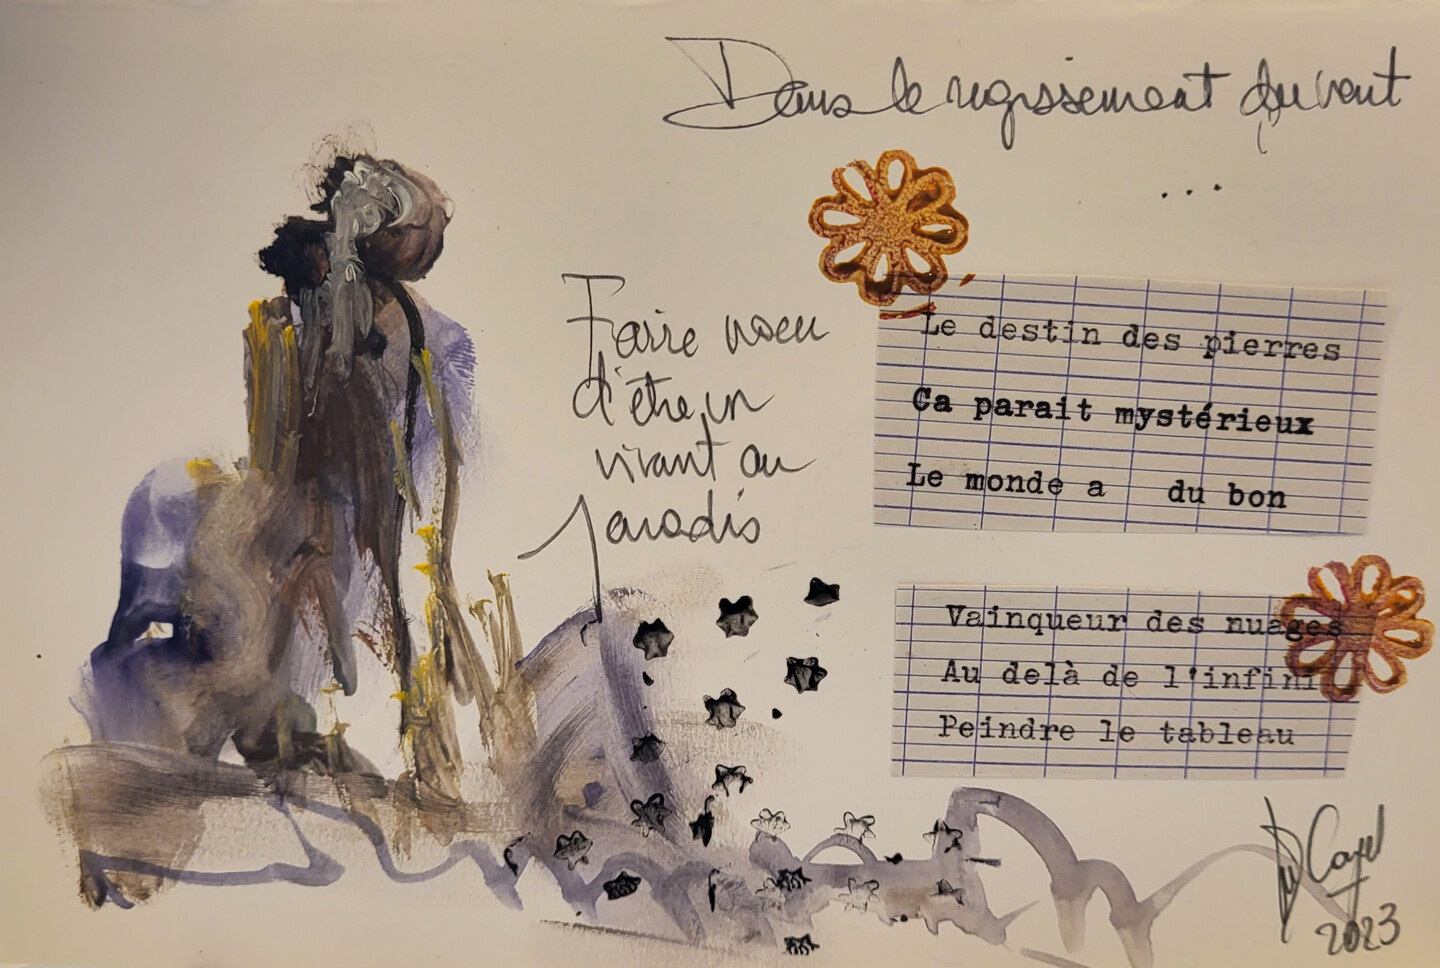 Dans le rugissement du vent
...
Faire voeu
d'être un
vivant au
paradis
Le destin des pierres
Ca parait mystérieux
Le monde a du bon
Vainqueur des nuages
Au delà de l'infini
Peindre le tableau
2023